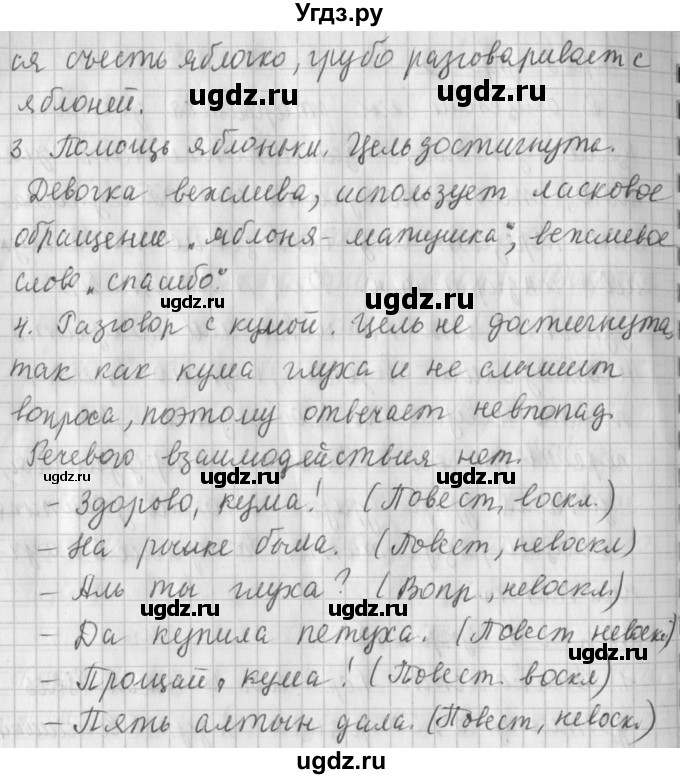 Угдз.ру
ся съесть яблочко, грубо разговаривает с
яблоней.
ugdz.ru ugdz.ru
3. Помощь яблоньки. Цель достигнута.
Девочка вежлива, использует ласковое
обращение „яблоня-матушка“, вежливое
слово „спасибо“.
ugdz.ru ugdz.ru
4. Разговор с кумой. Цель не достигнута,
так как кума глуха и не слышит
вопроса, поэтому отвечает невпопад.
Речевого взаимодействия нет.
ugdz.ru ugdz.ru ugdz.ru
- Здорово, кума! (Повест, воскл.)
- На рынке была. (Повест, невоскл)
- Аль ты глуха? (Вопр, невоскл.)
ugdz.ru ugdz.ru
- Да купила петуха. (Повест невоскл)
ugdz.ru
- Прощай, кума! (Повест. воскл)
ugdz.ru
- Пять алтын дала. (Повест, невоск.)
ugdz.ru